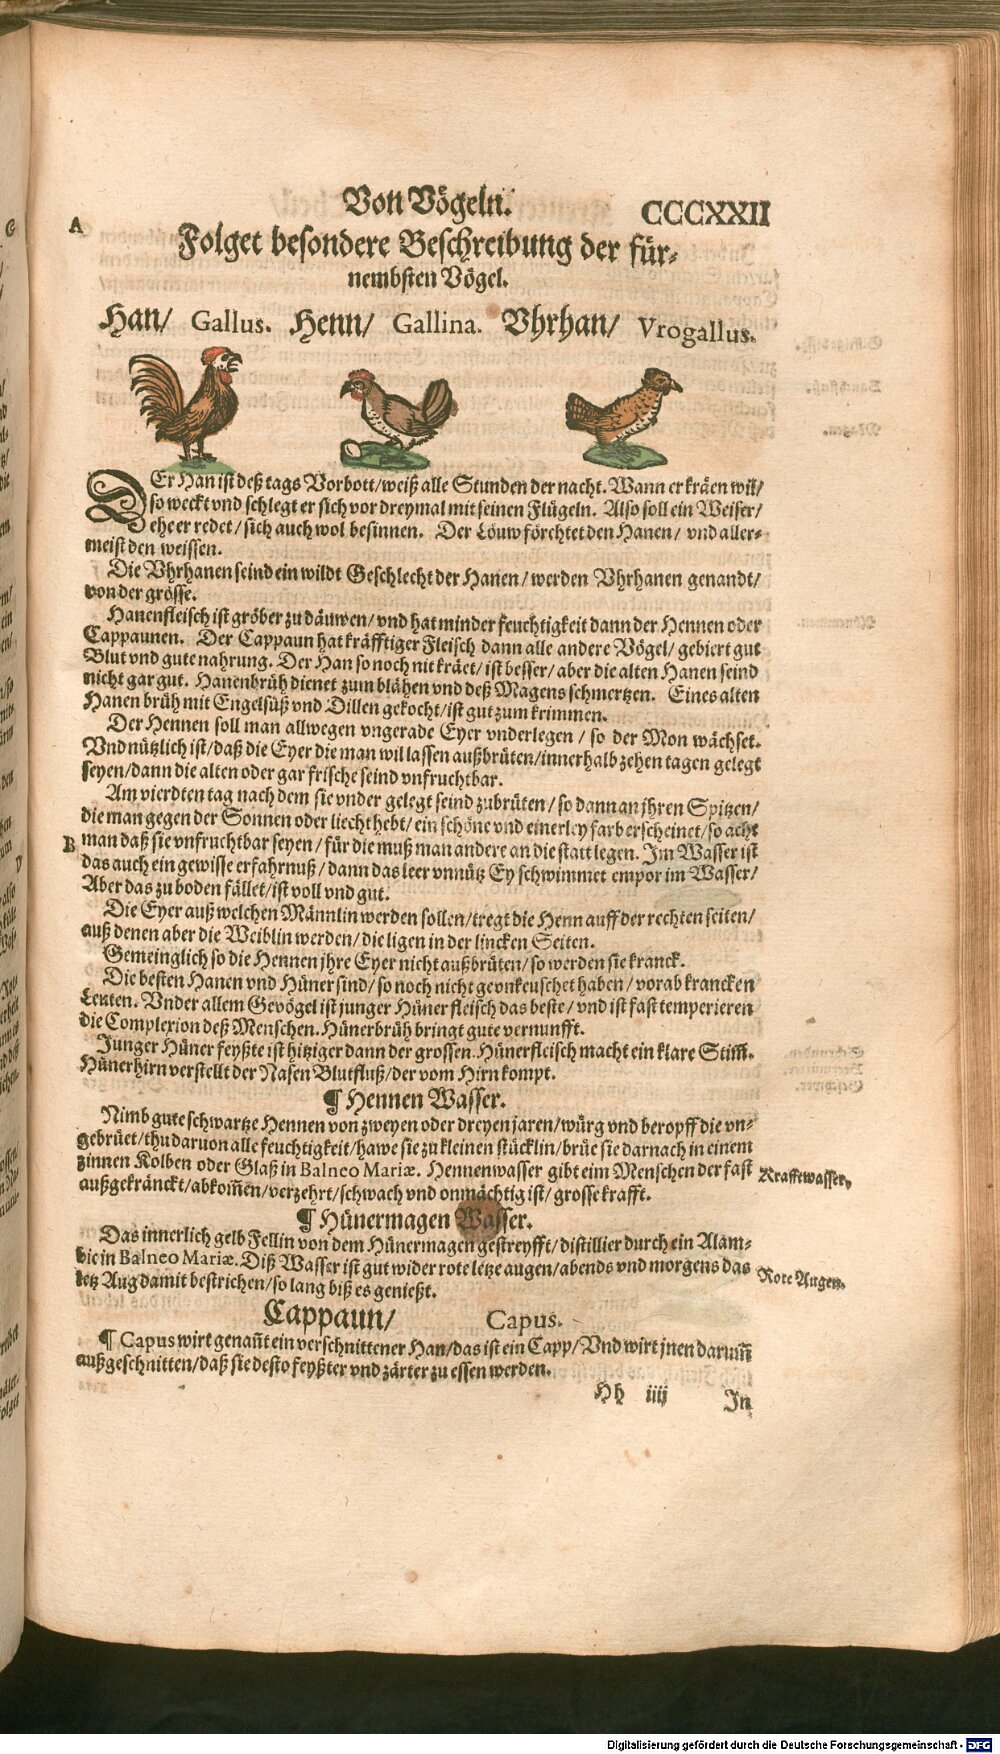 Von Vögeln.
CCCXXII
A
Folget besondere Beschreibung der für-
nembsten Vögel.
Han/ Gallus. Henn/ Gallina. Vhrhan/ Vrogallus.
DEr Han ist deß tags Vorbott/weiß alle Stunden der nacht. Wann er kräen wil/
so weckt vnd schlegt er sich vor dreymal mit seinen Flügeln. Also soll ein Weiser/
ehe er redet/sich auch wol besinnen. Der Löuw förchtet den Hanen/ vnd aller-
meist den weissen.
Die Vhrhanen seind ein wildt Geschlecht der Hanen/werden Vhrhanen genandt/
von der grösse.
Hanenfleisch ist gröber zu däuwen/vnd hat minder feuchtigkeit dann der Hennen oder
Cappaunen. Der Cappaun hat kräfftiger Fleisch dann alle andere Vögel/ gebiert gut
Blut vnd gute nahrung. Der Han so noch nit kräet/ist besser/aber die alten Hanen seind
nicht gar gut. Hanenbrüh dienet zum blähen vnd deß Magens schmertzen. Eines alten
Hanen brüh mit Engelsüß vnd Dillen gekocht/ist gut zum krimmen.
Der Hennen soll man allwegen vngerade Eyer vnderlegen / so der Mon wächset.
Vnd nützlich ist/daß die Eyer die man wil lassen außbrüten/innerhalb zehen tagen gelegt
seyen/dann die alten oder gar frische seind vnfruchtbar.
Am vierdten tag nach dem sie vnder gelegt seind zubrüten/so dann an jhren Spitzen/
die man gegen der Sonnen oder liecht hebt/ein schöne vnd einerley farb erscheinet/so acht
B
man daß sie vnfruchtbar seyen/für die muß man andere an die statt legen. Im Wasser ist
das auch ein gewisse erfahrnuß/dann das leer vnnütz Ey schwimmet empor im Wasser/
Aber das zu boden fället/ist voll vnd gut.
Die Eyer auß welchen Männlin werden sollen/tregt die Henn auff der rechten seiten/
auß denen aber die Weiblin werden/die ligen in der lincken Seiten.
Gemeinglich so die Hennen jhre Eyer nicht außbrüten/so werden sie kranck.
Die besten Hanen vnd Hüner sind/so noch nicht gevnkeuschet haben/vorab krancken
Leuten. Vnder allem Gevögel ist junger Hüner fleisch das beste/vnd ist fast temperieren
die Complexion deß Menschen. Hünerbrüh bringt gute vernunfft.
Junger Hüner feyßte ist hitziger dann der grossen. Hünerfleisch macht ein klare Stim̃.
Hünerhirn verstellt der Nasen Blutfluß/der vom Hirn kompt.
¶ Hennen Wasser.
Nimb gute schwartze Hennen von zweyen oder dreyen jaren/würg vnd beropff die vn-
gebrüet/thu daruon alle feuchtigkeit/hawe sie zu kleinen stücklin/brüe sie darnach in einem
zinnen Kolben oder Glaß in Balneo Mariæ. Hennenwasser gibt eim Menschen der fast
Krafftwasser.
außgekränckt/abkom̃en/verzehrt/schwach vnd onmächtig ist/grosse krafft.
¶ Hünermagen Wasser.
Das innerlich gelb Fellin von dem Hünermagen gestreyfft/distillier durch ein Alam-
bic in Balneo Mariæ. Diß Wasser ist gut wider rote letze augen/abends vnd morgens das
Rote Augen.
letz Aug damit bestrichen/so lang biß es genießt.
Cappaun/ Capus.
¶ Capus wirt genañt ein verschnittener Han/das ist ein Capp/Vnd wirt jnen darum̃
außgeschnitten/daß sie desto feyßter vnd zärter zu essen werden.
Hh iiij
In
Digitalisierung gefördert durch die Deutsche Forschungsgemeinschaft - DFG